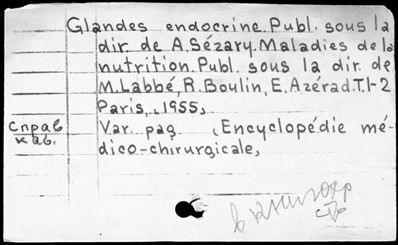 Glandes endocrine. Publ. sous la
dir. de A. Sézary. Maladies de la
nutrition. Publ. sous la dir. de
M. Labbé, R. Boulin, E. Azérad. T. 1-2
Paris, 1955,
Справ
каб.
Var. pag. (Encyclopédie mé-
dico-chirurgicale,